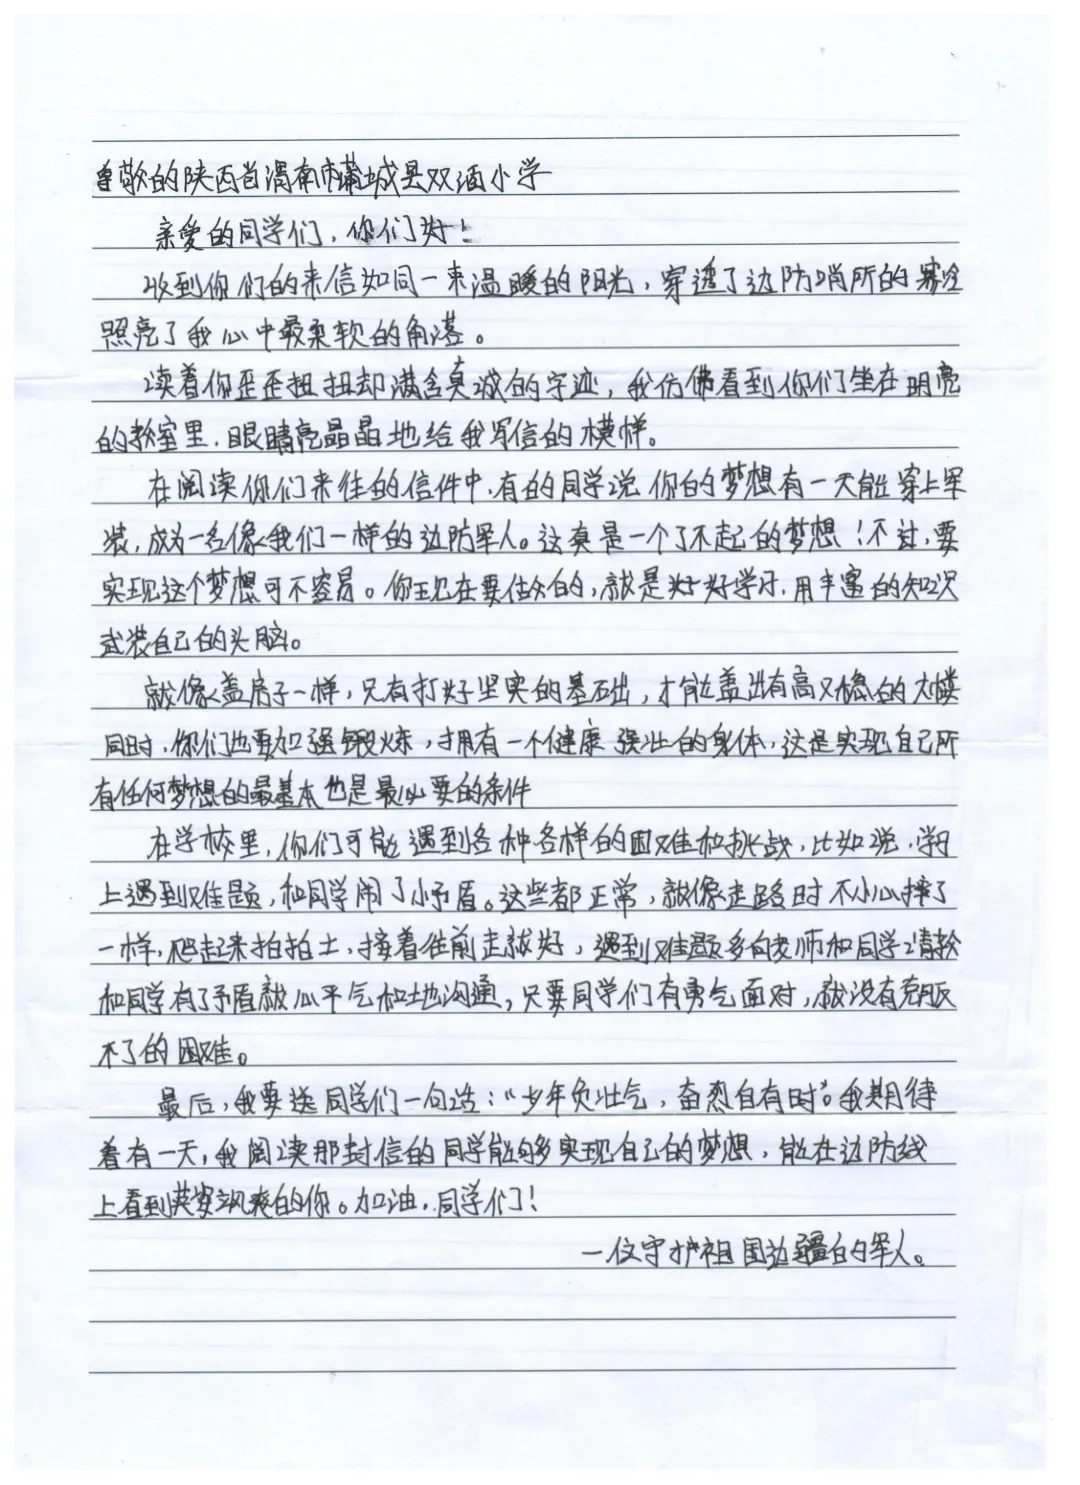 尊敬的陕西省渭南市蒲城县双酒小学
亲爱的同学们，你们好！
收到你们的来信如同一束温暖的阳光，穿透了边防哨所的寒冷
照亮了我心中最柔软的角落。
读着你歪歪扭扭却满含真诚的字迹，我仿佛看到你们坐在明亮
的教室里，眼睛亮晶晶地给我写信的模样。
在阅读你们来往的信件中，有的同学说你的梦想有一天能穿上军
装，成为一名像我们一样的边防军人。这真是一个了不起的梦想！不过，要
实现这个梦想可不容易。你现在要做的，就是好好学习，用丰富的知识
武装自己的头脑。
就像盖房子一样，只有打好坚实的基础，才能盖出有高又稳的大楼
同时，你们也要加强锻炼，拥有一个健康强壮的身体，这是实现自己所
有任何梦想的最基本也是最必要的条件
在学校里，你们可能遇到各种各样的困难和挑战，比如说，学习
上遇到难题，和同学闹了小矛盾。这些都正常，就像走路时不小心摔了
一样，爬起来拍拍土，接着往前走就好，遇到难题多向老师和同学请教
和同学有了矛盾就心平气和地沟通，只要同学们有勇气面对，就没有克服
不了的困难。
最后，我要送同学们一句话：“少年负壮气，奋烈自有时”。我期待
着有一天，我阅读那封信的同学能够多实现自己的梦想，能在边防线
上看到英姿飒爽的你。加油，同学们！
一位守护祖国边疆的军人。